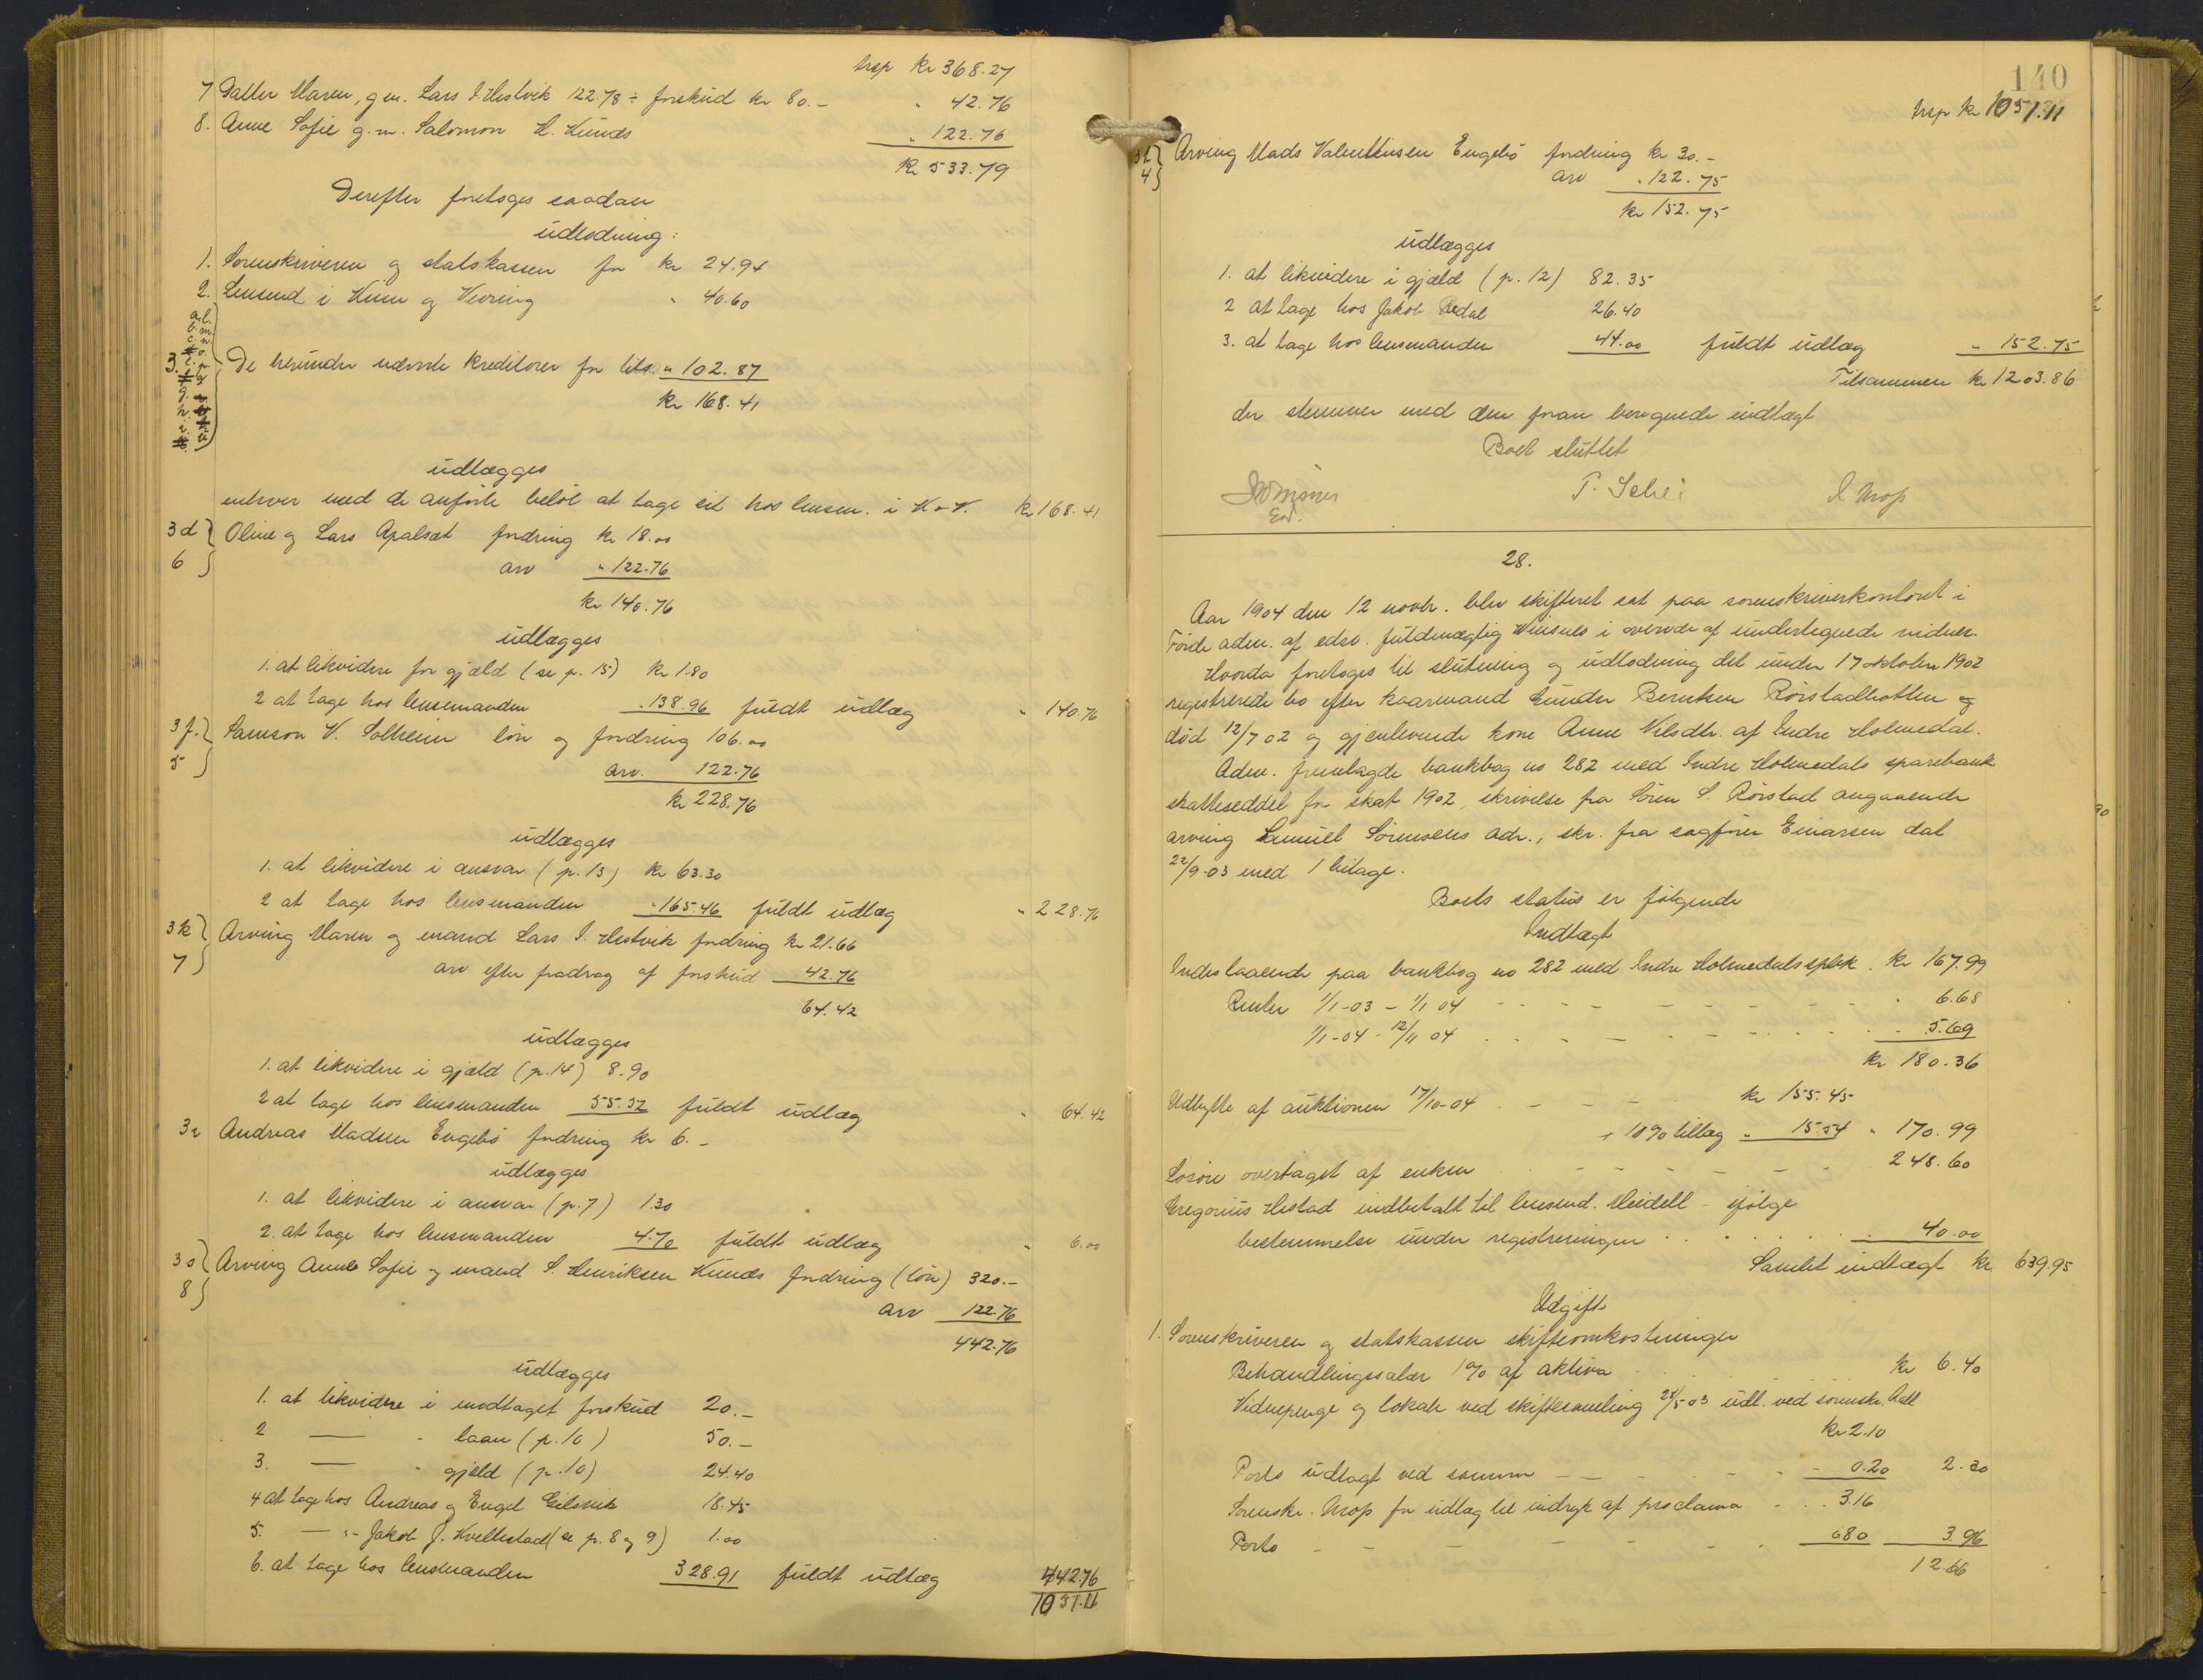 trsp kr 368.27
7 Datter Maren, g.m. Lars I. Hestvik 122.78 ÷ forskud kr 80.- " 42.76
8. Anne Sofie g.m. Salomon H. Kunds " 122.76
kr 533.79
Derefter foretoges saadan
udlodning:
1. Sorenskriveren og statskassen for kr 24.94
2. Lensmd i Kinn og Vevring " 40.60
3. De herunder nævnte kreditorer for tils. " 102.87
kr 168.41
udlægges
enhver med de anførte beløb at tage sit hos lensm. i K. o V. kr 168.41
3d Oline og Lars Apalset fordring kr 18.00
6 arv " 122.76
kr 140.76
udlægges
1. at likvidere for gjæld (se p. 15) kr 1.80
2 at tage hos lensmanden " 138.96 fuldt udlæg " 140.76
3f. Samson V. Solheim løn og fordring 106.00
5 arv. 122.76
kr 228.76
udlægges
1. at likvidere i ansvar (p. 13) kr 63.30
2 at tage hos lensmanden " 165.46 fuldt udlæg " 228.76
3k Arving Maren og mand Lars I. Hestvik fordring kr 21.66
7 arv efter fradrag af forskud 42.76
64.42
udlægges
1. at likvidere i gjæld (p. 14) 8.90
2 at tage hos lensmanden 55.52 fuldt udlæg " 64.42
3r Andreas Madsen Engebø fordring kr 6.-
udlægges
1. at likvidere i ansvar (p. 7) 1.30
2. at tage hos lensmanden 4.70 fuldt udlæg " 6.00
3s Arving Anne Sofie og mand S. Henriksen Kunds fordring (løn) 320.-
8 arv 122.76
442.76
udlægges
1. at likvidere i modtaget forskud 20.-
2 — " laan (p. 10) 50.-
3. — " gjæld (p. 10) 24.40
4 at tage hos Andreas og Engel Eilsvik 18.45
5. — " - Jakob J. Hvellestad (se p. 8 og 9) 1.00
6. at tage hos lensmanden 328.91 fuldt udlæg 442.76
1051.11
140
trsp kr 1051.11
3t Arving Mads Valentinsen Engebø fordring kr 30.-
4 arv " 122.75
kr 152.75
udlægges
1. at likvidere i gjæld (p. 12) 82.35
2 at tage hos Jakob Redal 26.40
3. at tage hos lensmanden 44.00 fuldt udlæg " 152.75
Tilsammen kr 1203.86
der stemmer med den foran beregnede indtægt
Boet sluttet
P. Schei A. Krop
28.
Aar 1904 den 12 novbr. blev skifteret sat paa sorenskriverkontoret i
Førde adm. af edsv. fuldmægtig i overvær af undertegnede vidner.
Hvorda foretoges til slutning og udlodning det under 17 oktober 1902
registrerede bo efter kaarmand Gunder Berntsen Rørstadhatten og
død 12/7 02 og gjenlevende kone Anne Nilsdtr. af Indre Holmedal.
Adm. fremlagde bankbog no 282 med Indre Holmedals sparebank
skatteseddel for skat 1902, skrivelse fra Søren S. Rørstad angaaende
arving Samuel Sørensens adr., skr. fra sagfører Einarsen dat
22/9-03 med 1 bilage.
Boets status er følgende
Indtægt
Indestaaende paa bankbog no 282 med Indre Holmedals spbk. kr 167.99
Renter 1/1-03 - 1/1 04 - - - - " 6.68
1/1-04 - 12/11 04 - - - - " 5.69
kr 180.36
Udbytte af auktionen 17/10-04 - - - kr 155.45
+ 10% tillæg " 15.54 " 170.99
Løsøre overtaget af enken - - - - 248.60
Gregorius Hestad indbetalt til lensmd. Meidell - ifølge
bestemmelse under registreringen . . . . 40.00
Samlet indtægt kr. 639.95
Udgift
1. Sorenskriveren og statskassen skifteomkostninger
Behandlingssalær 1% af aktiva kr 6.40
Vidnepenge og lokale ved skiftesamling 28/5 03 udl. ved sorenskr. Adl
kr 2.10
Porto udlagt ved samme - - - - 0.20 2.30
Sorenskr. Krop for udlæg til indryk af proclama . . . 3.16
Porto - - - - 0.80 3.96
12.66